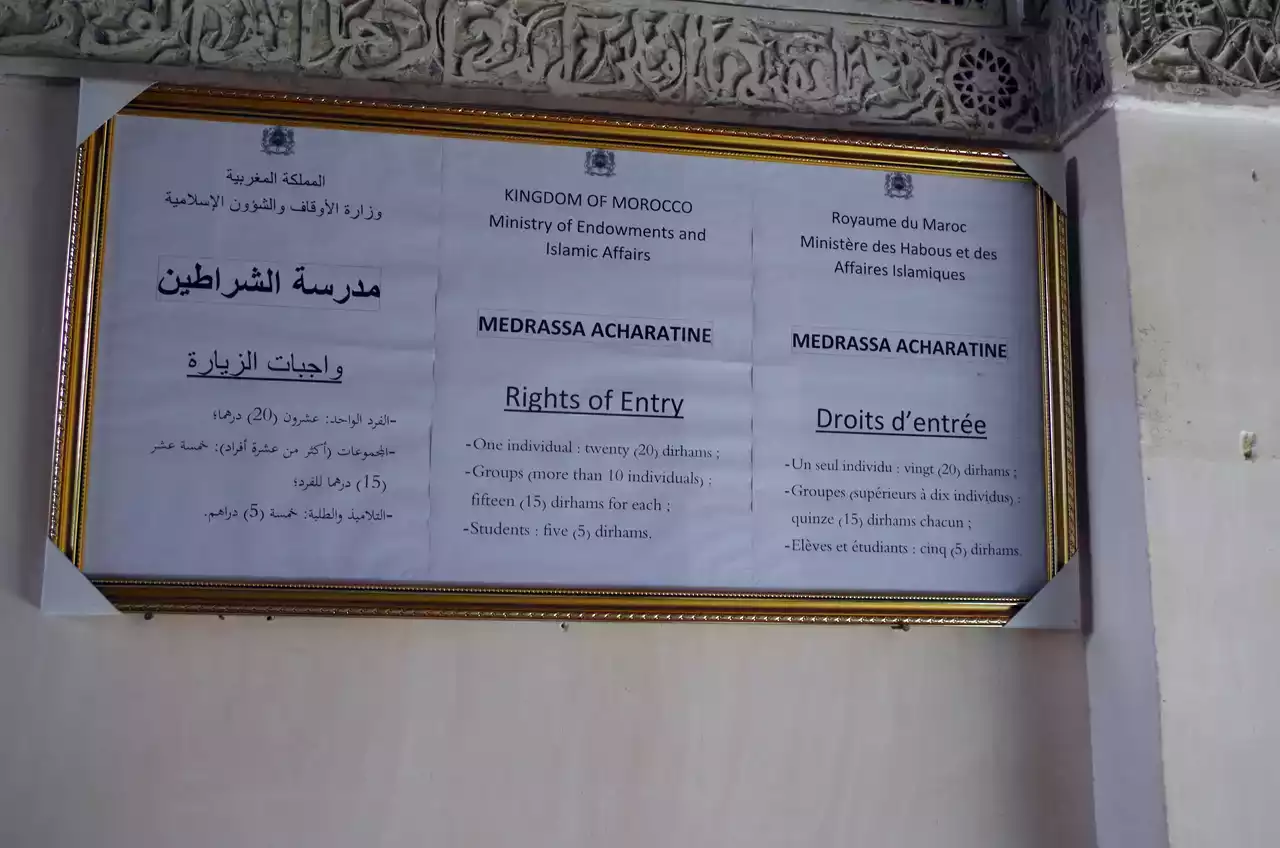 المملكة المغربية
وزارة الأوقاف والشؤون الإسلامية
مدرسة الشراطين
واجبات الزيارة
-الفرد الواحد: عشرون (20) درهما؛
-المجموعات (أكثر من عشرة أفراد): خمسة عشر
(15) درهما للفرد؛
-التلاميذ والطلبة: خمسة (5) دراهم.
KINGDOM OF MOROCCO
Ministry of Endowments and
Islamic Affairs
MEDRASSA ACHARATINE
Rights of Entry
-One individual : twenty (20) dirhams ;
-Groups (more than 10 individuals) :
fifteen (15) dirhams for each ;
-Students : five (5) dirhams.
Royaume du Maroc
Ministère des Habous et des
Affaires Islamiques
MEDRASSA ACHARATINE
Droits d’entrée
-Un seul individu : vingt (20) dirhams ;
-Groupes (supérieurs à dix individus) :
quinze (15) dirhams chacun ;
-Elèves et étudiants : cinq (5) dirhams.